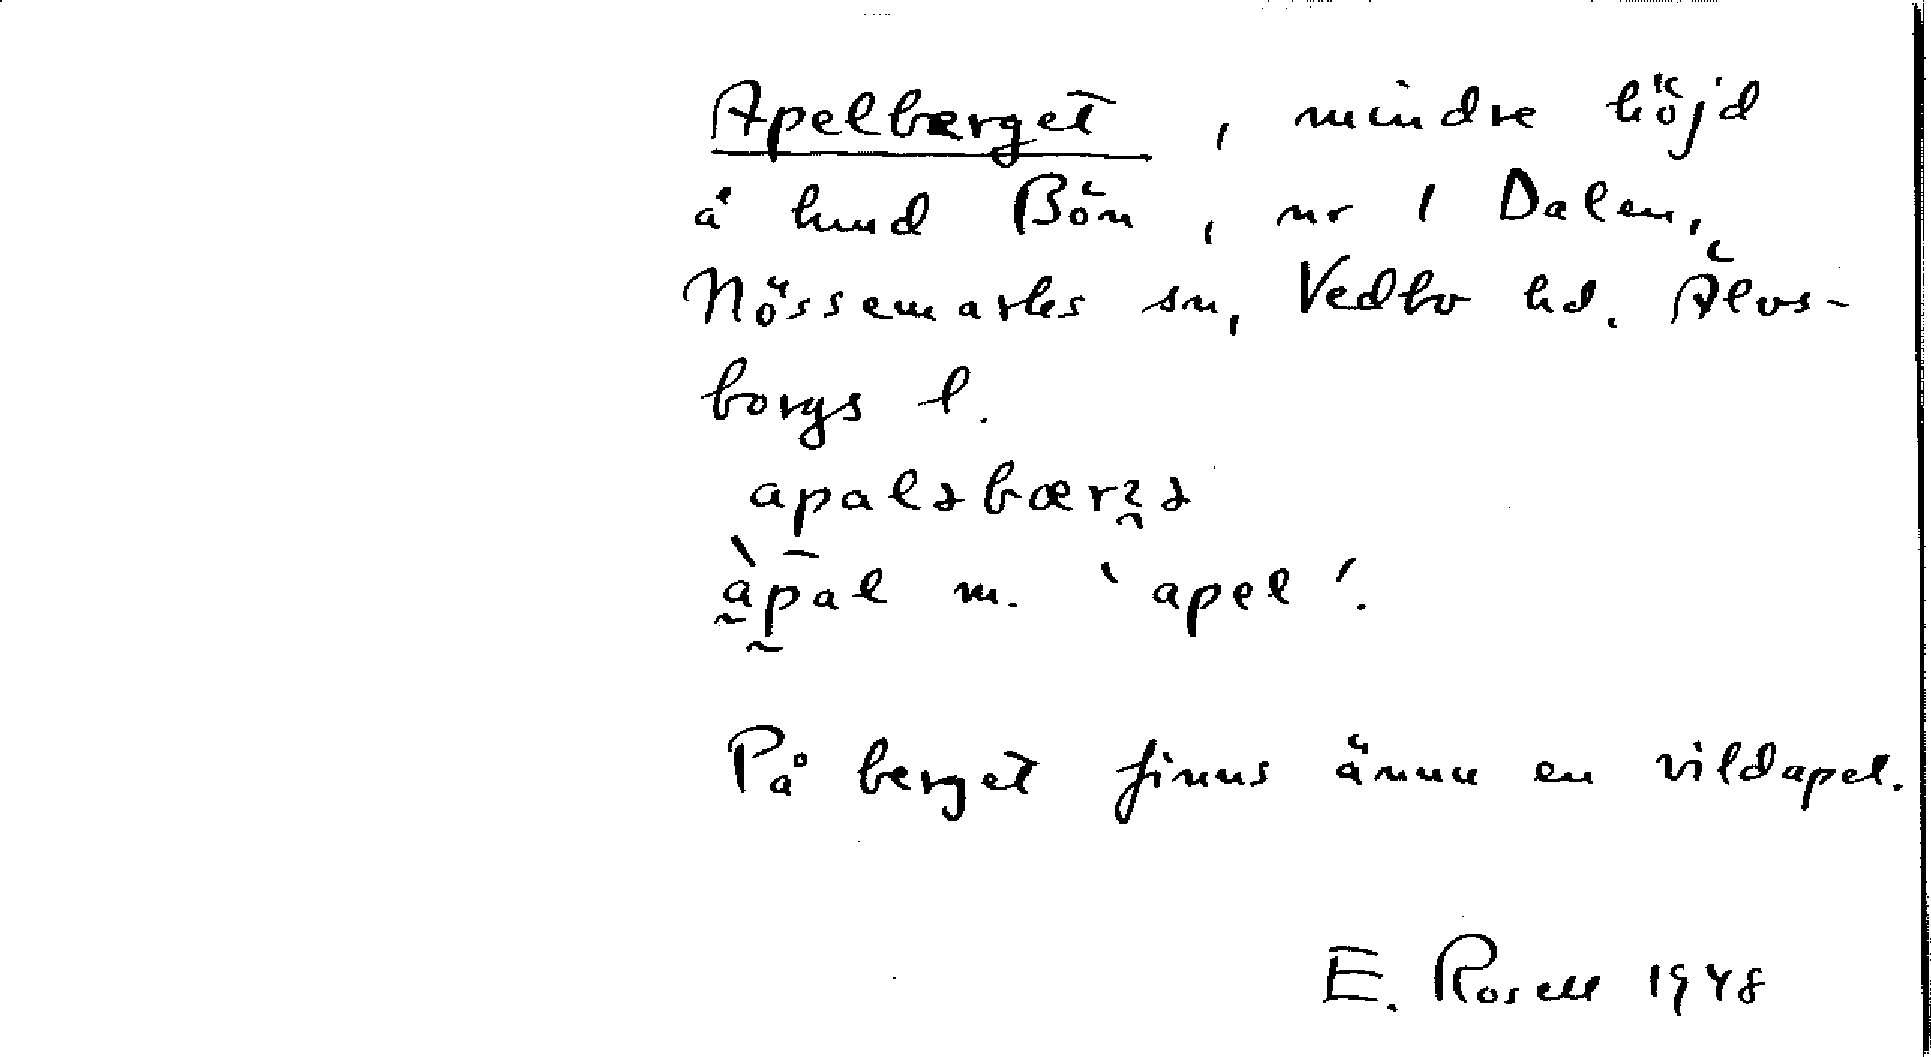 Apelberget, mindre höjd
å hmd Bön, nr 1 Dalen,
Nössemarks sn, Vedbo hd. Älvs-
borgs l.
apaləbærɜə
àpal m. ‘apel’.
På berget finns ännu en vildapel.
E. Rosell 1948